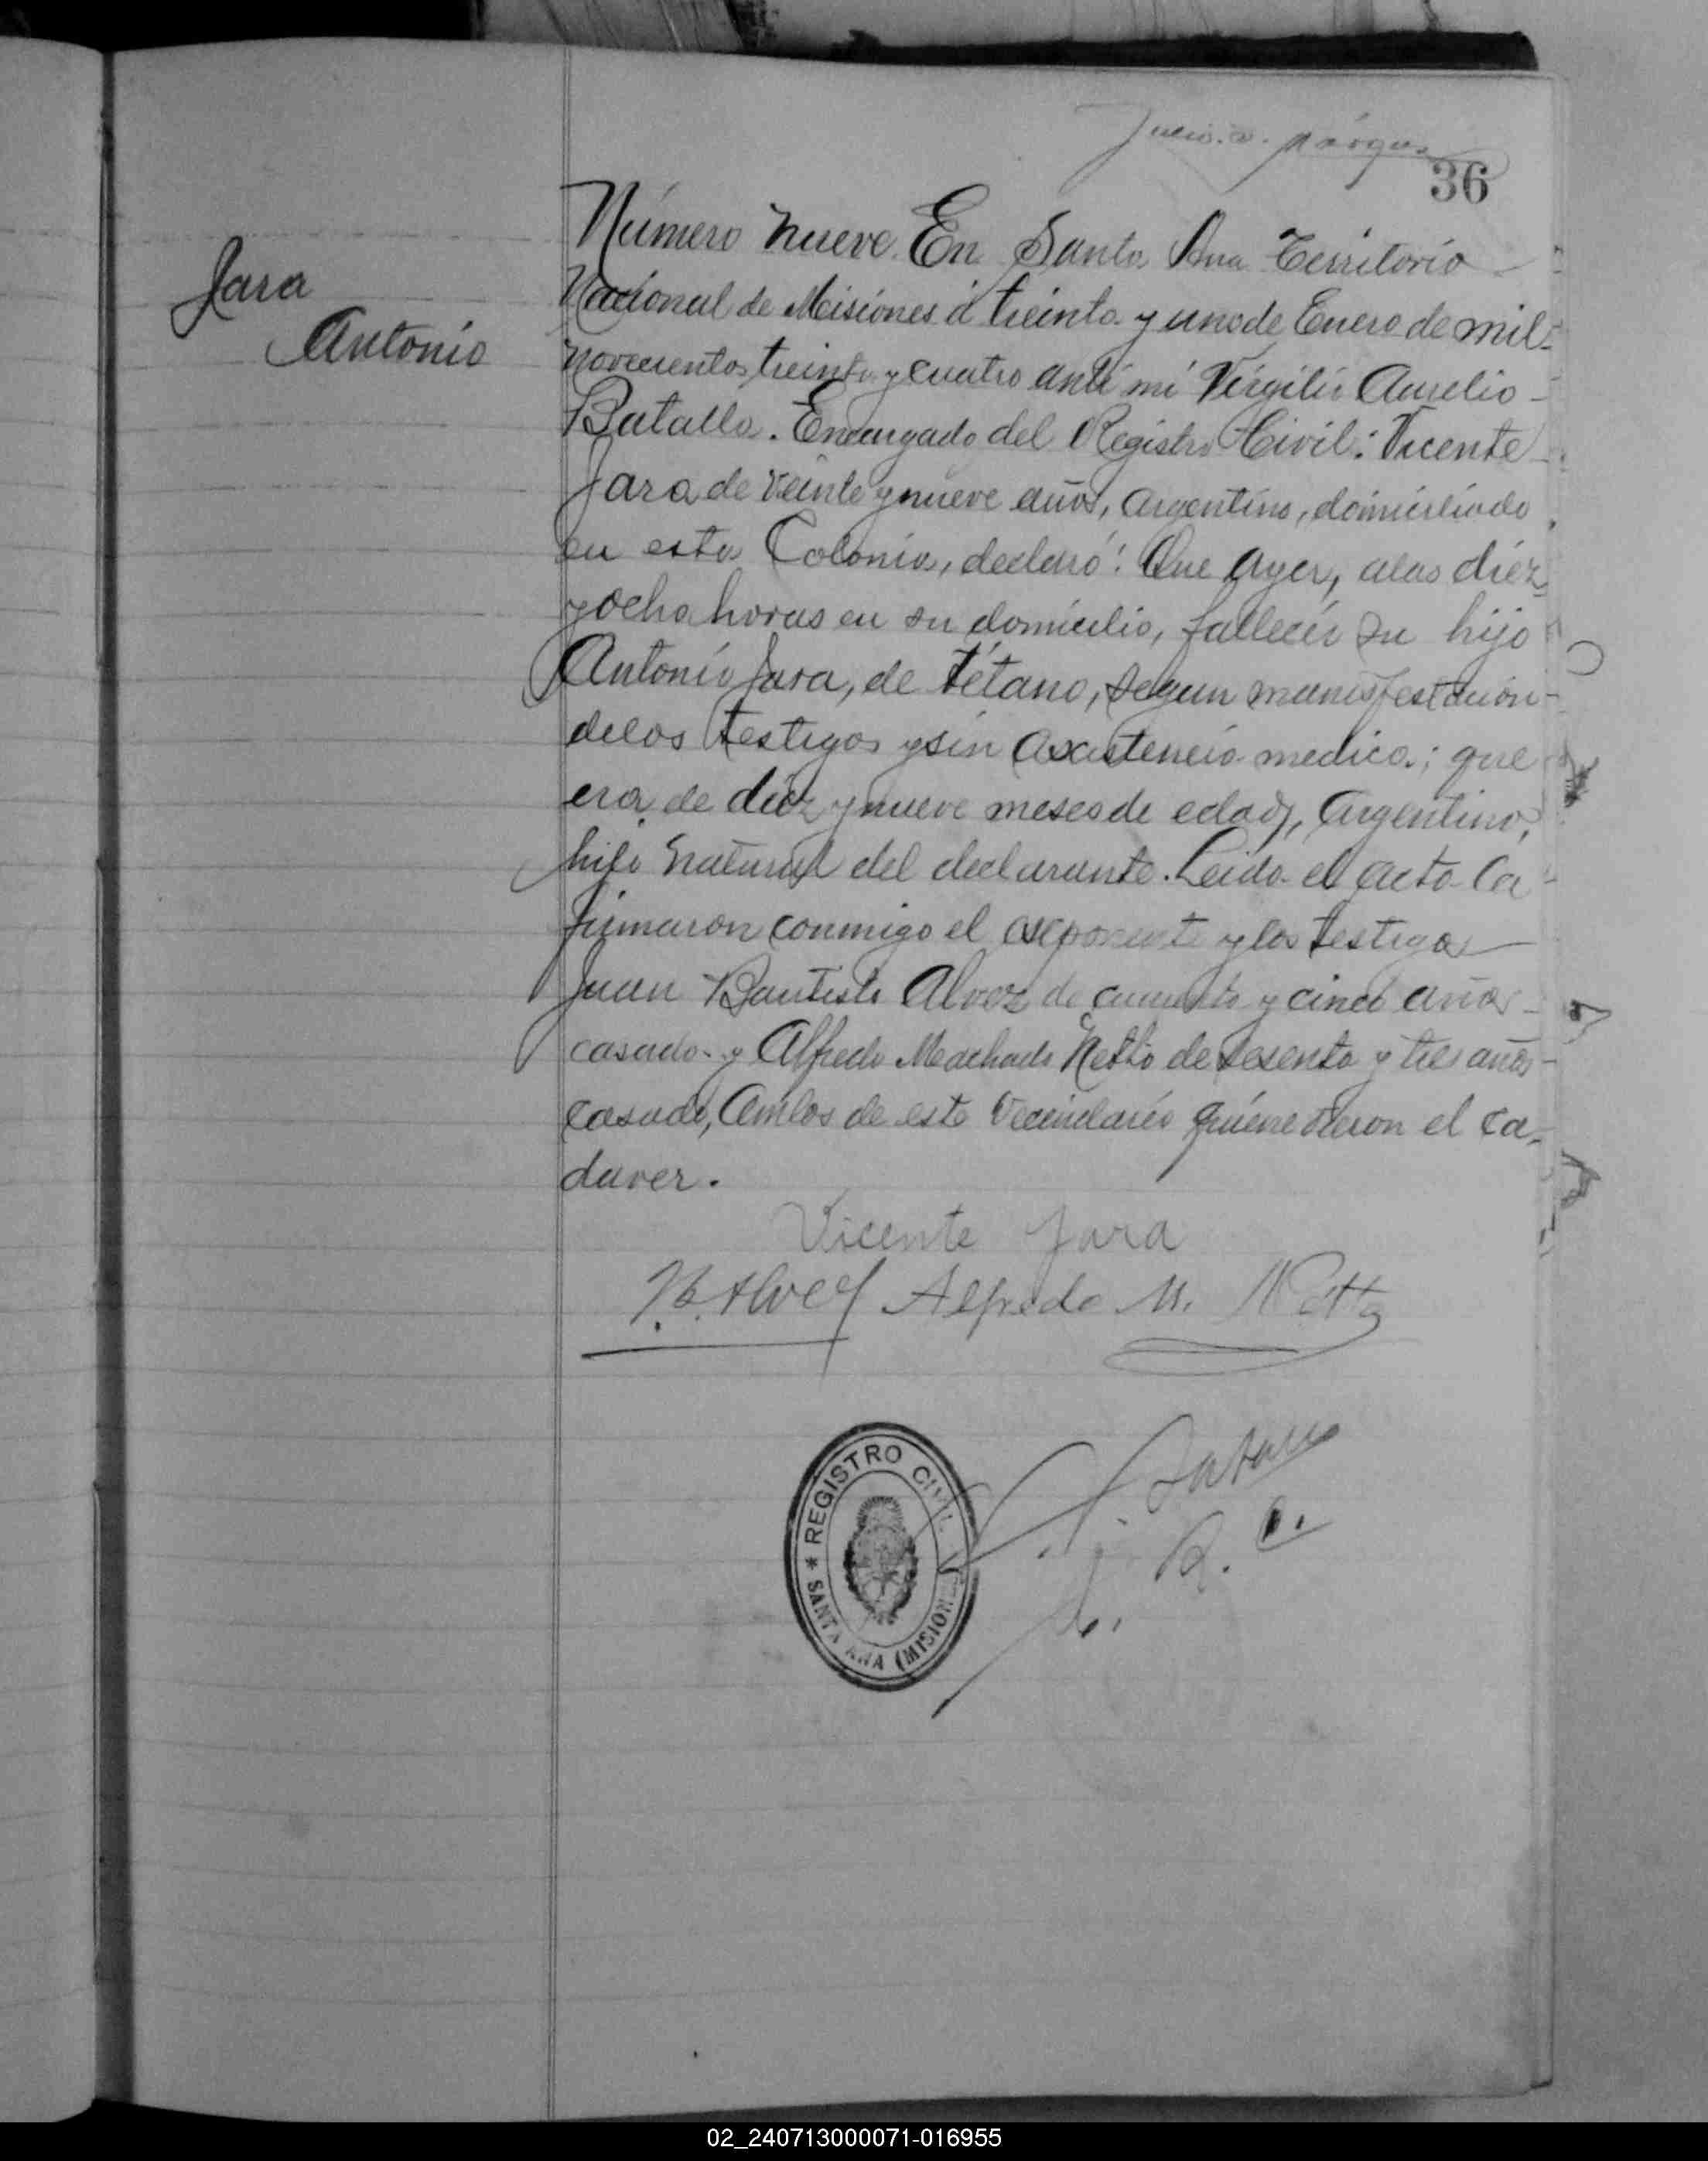 36
Jara
Antonio
Número nueve. En Santa Ana Territorio
Nacional de Misiónes á treinta y uno de Enero de mil
novecientos treinta y cuatro anté mi Virgilio Aurelio
Batalla. Encargado del Registro Civil: Vicente
Jara de veinte y nueve años, argentino, domiciliado
en esta Colonia, declaró: Que ayer, a las diéz
y ocho horas en su domicilio, falleció su hijo
Antonio Jara, de tétano, segun manisfestación
de los testigos y sin axistencia medica; que
era de diéz y nueve meses de edad, Argentino,
hijo natural del declarante. Leida el acta la
firmaron conmigo el exponente y los testigos
Juan Bautista Alvez de cuarenta y cinco años
casado y Alfredo Machado Netto de sesenta y tres años
casado, Ambos de este vecindario quiéne vieron el ca-
daver.
Vicente Jara
J. B. Alvez Alfredo M. Netto
REGISTRO CIVIL
SANTA ANA (MISIONES)
Batalla
02_240713000071-016955